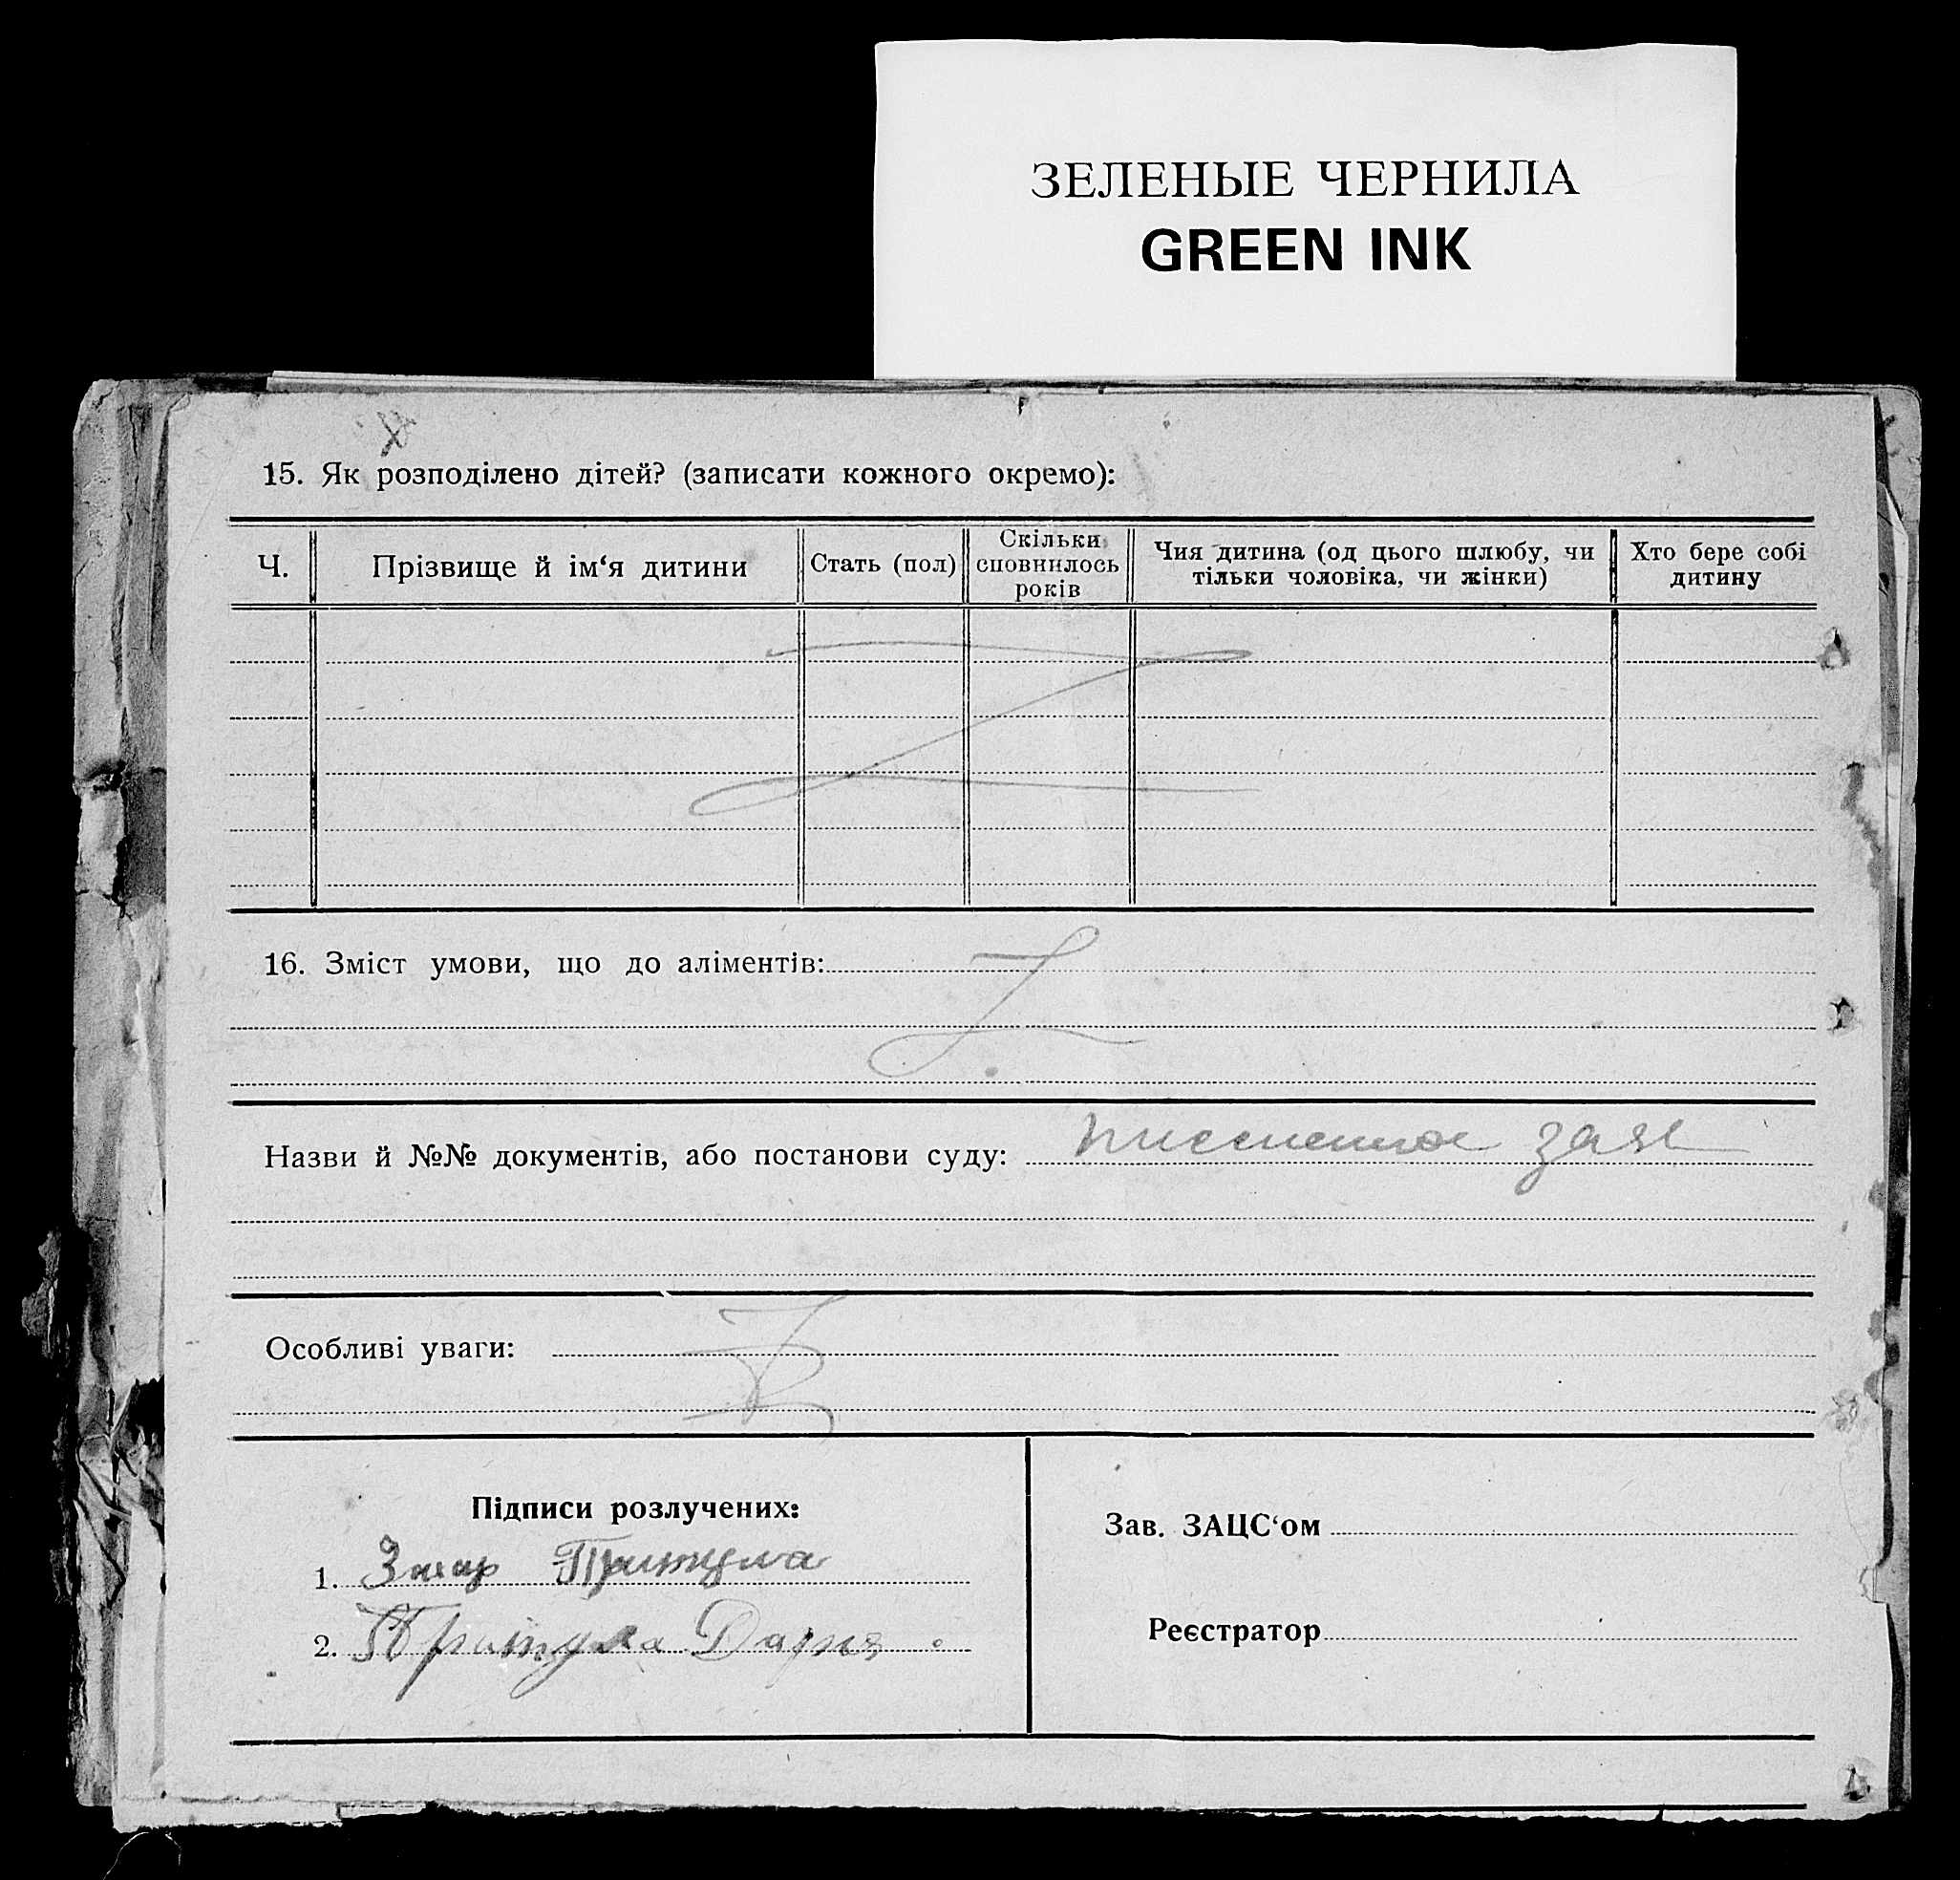 ЗЕЛЕНЫЕ ЧЕРНИЛА
GREEN INK
15. Як розподілено дітей? (записати кожного окремо):
Ч. Прізвище й ім‘я дитини Стать (пол) Скільки сповнилось років Чия дитина (од цього шлюбу, чи тільки чоловіка, чи жінки) Хто бере собі дитину
16. Зміст умови, що до аліментів:
Назви й №№ документів, або постанови суду: зая
Особливі уваги:
Підписи розлучених:
Зав. ЗАЦС‘ом
1. Притула
Реєстратор
2. Притула Дарія